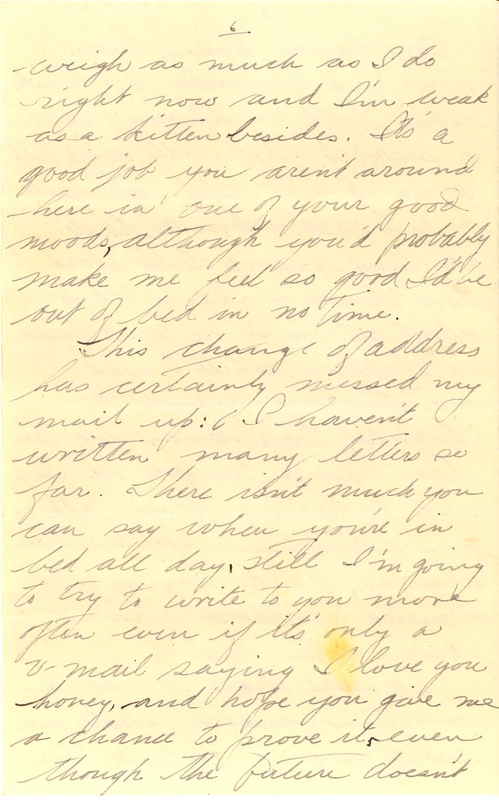 6
weigh as much as I do
right now and I'm weak
as a kitten besides. It's a
good job you aren't around
here in one of your good
moods, although you'd probably
make me feel so good I'd be
out of bed in no time.
This change of address
has certainly messed my
mail up: I haven't
written many letters so
far. There isn't much you
can say when you're in
bed all day, still I'm going
to try to write to you more
often even if it's only a
V-mail saying I love you
honey, and hope you give me
a chance to prove it, even
though the future doesn't